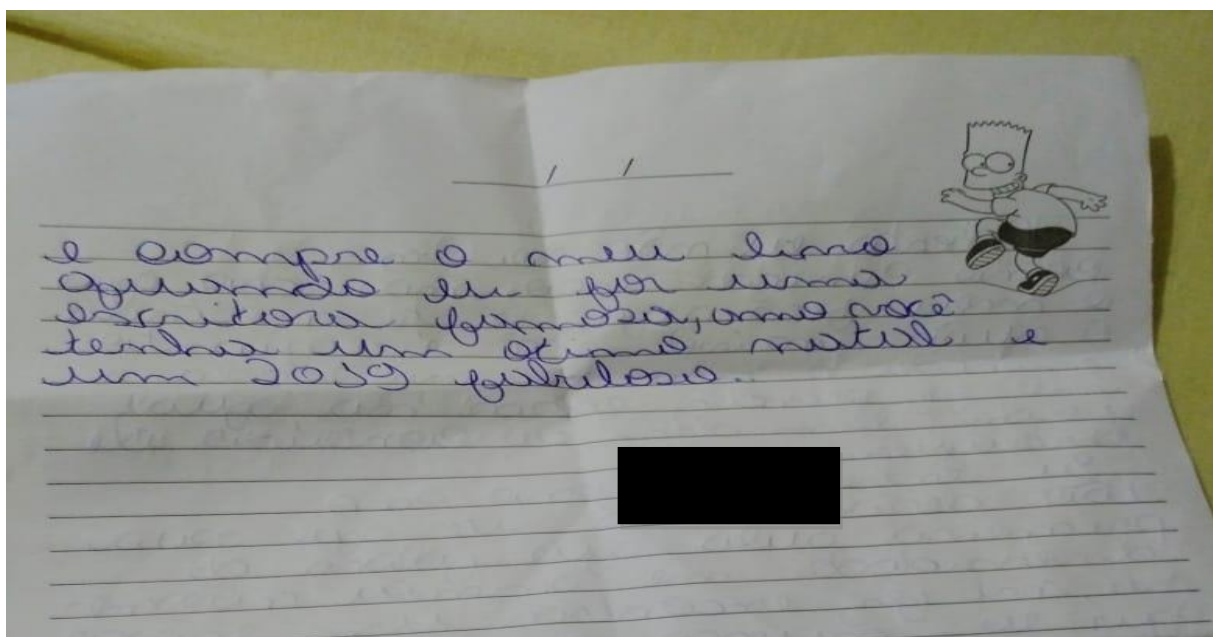 / /
e compre o meu livro
quando eu for uma
escritora famosa, amo você
tenha um otimo natal e
um 2019 fabuloso.